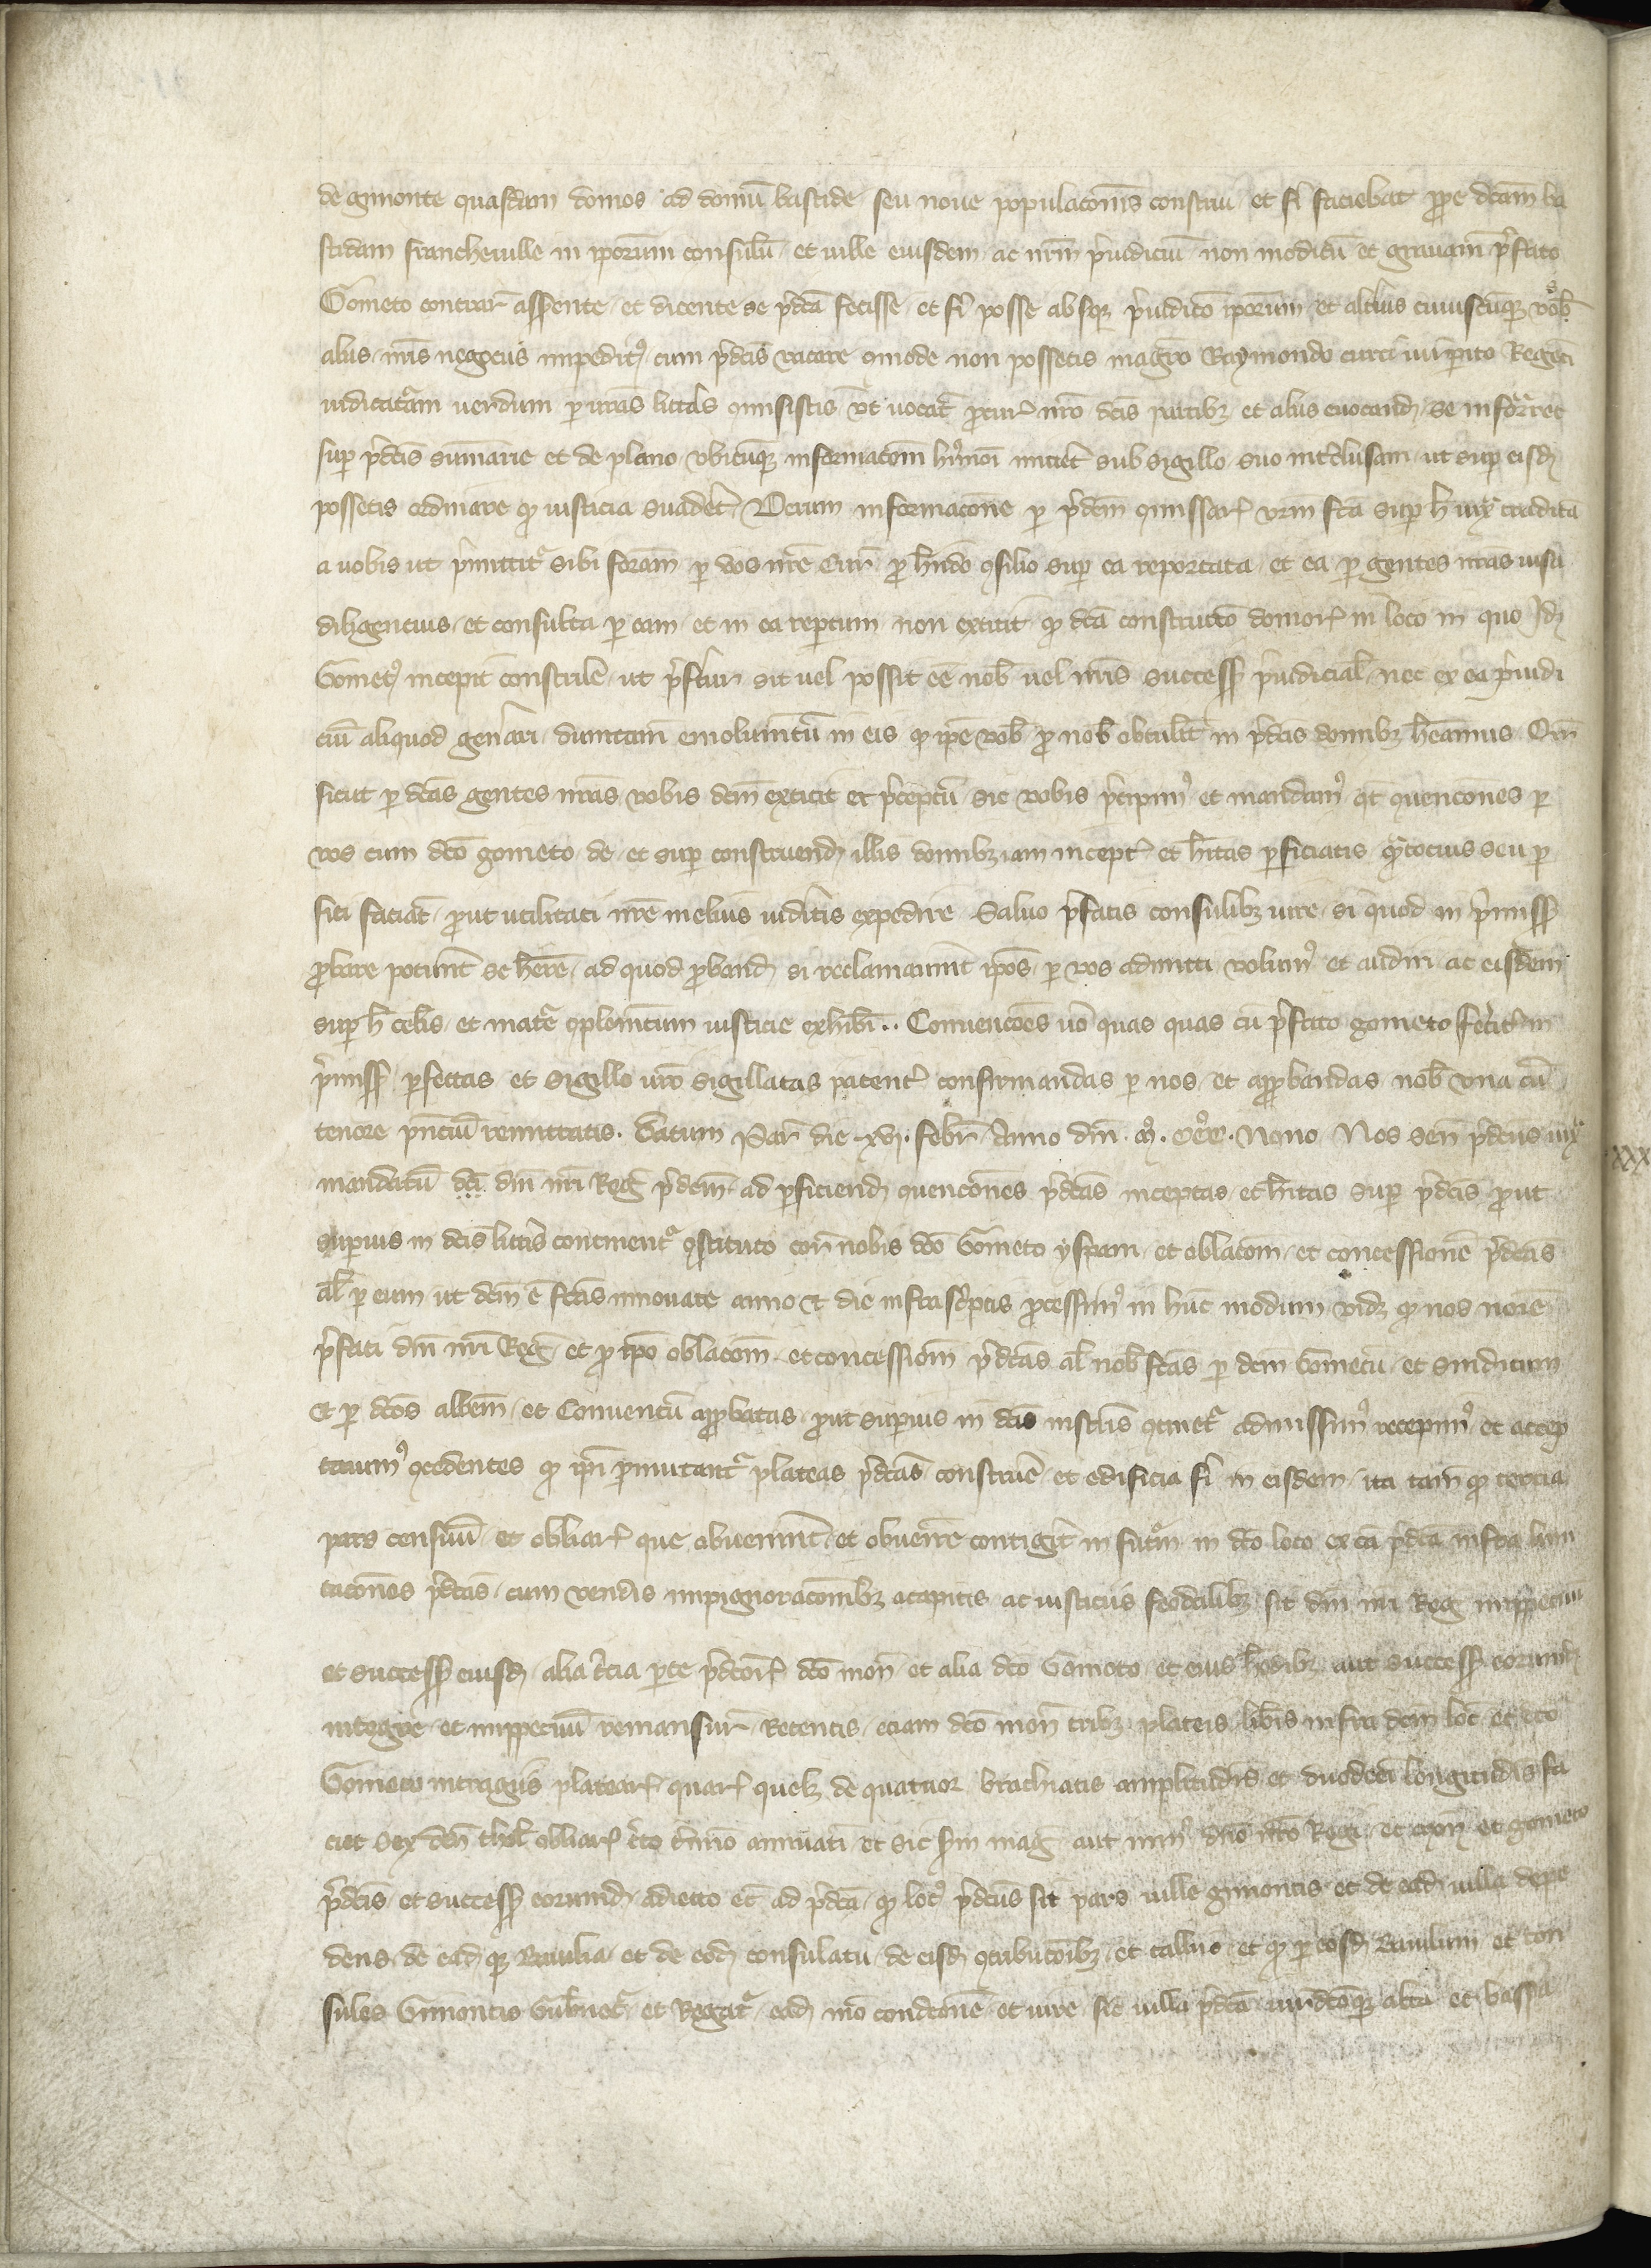 de gimonte quasdam domos ad domū bastide seu noue populacōnis construi et fi faciebat ꝓpe dc̄am ba
stidam francheuille in ip̄orum consulū et uille eiusdem ac nr̄m p̄iudiciū non modicū et grauam̄ p̄fato
Gometo contrar̄ asserente et dicente se p̄dc̄a fecisse et fi posse absqꝫ p̄iudicō ip̄orum et alt̄ius cuiuscūqꝫ vob̄
aliis nr̄is negociis impeditꝰ cum p̄dcīs vacare ꝯmode non possetis magr̄o Raymondo curti iurip̄ito Regēti
iudicat̄am uerdum ꝑ ur̄as litt̄as ꝯmisistis vt uocat̄ ꝓcur̄ nr̄o dcīs partibꝫ et aliis euocand̄ se informaret
suꝑ p̄dcīs summarie et de plano vbicūqꝫ informacōm hꝰmōi micter̄ sub sigillo suo int̄clusam ut suꝑ eisd̄
possetis ordinare qd̄ iusticia suader̄ Verum informacōne ꝑ p̄dcm̄ ꝯmissar̄ vr̄m fcā suꝑ h̄ iux̄ traditā
a uobis ut p̄mittit̄ sibi formā ꝑ vos nr̄e Cur̄ ꝓ hn̄do ꝯsilio suꝑ ea reportata et ea ꝑ gentes nr̄as uisa
diligencius et consulta ꝑ eam et in ea rep̄tum non extitit qd̄ dcā constructō domor̄ in loco in quo Id̄
Gometꝰ incepit construe ut p̄fertur sit uel possit eē nob̄ uel nr̄is success̄ p̄iudicial̄ nec ex ea p̄iudi
ciū aliquod gen̄ari dumtam̄ emolumtū in eis qd̄ ip̄e vob̄ ꝓ nob̄ obtulit in p̄dcīs domibꝫ heamus Qm̄
sicut ꝑ dc̄as gentes nr̄as vobis dcm̄ extitit et p̄ceptū sic vobis p̄cipimꝰ et mandamꝰ qt̄ ꝯuencōnes ꝑ
vos cum dcō gometo de et suꝑ construend̄ illis domibꝫ iam incept̄ et hītas ꝑficiatis qͣtocius seu ꝑ
fici faciat̄ ꝓut utilitati nr̄e melius uidr̄itis expedire Saluo p̄fatis consulibꝫ iure si quod in p̄miss̄
ꝓbare potūnt se her̄e ad quod ꝓband̄ si reclamauīnt ip̄os ꝑ vos admitti volumꝰ et audiri ac eisdem
suꝑ h̄ cel̄is et mat̄e ꝯplem̄tum iusticie exhibi.. Conuencōes uō quas quas cū p̄fato gometo fec̄it̄ in
p̄miss̄ ꝑfectas et sigillo ur̄o sigillatas patent̄ confirmandas ꝑ nos et apꝓbandas nob̄ vna cū
tenore pn̄ciū remittatis. Datum Par̄ die .xvi. febr̄ Anno dn̄i .mͦ.cccͦ. Nono Nos sen̄ p̄dcūs iux̄
mandatū dcī dn̄i nr̄i Reḡ p̄dcm̄ ad ꝑficiend̄ ꝯuencōnes p̄dcās inceptas et hītas suꝑ p̄dcīs ꝓut
suꝑius in dcīs litt̄is continent̄ ꝯstituto cor̄ nobis dcō Gometo yspam̄ et oblacōm et concessionē p̄dcās
al̄ ꝑ eum ut dcm̄ ē fcās innouate anno et die infrasc̄ptis ꝓcessimꝰ in hūc modum vidꝫ qd̄ nos noīe
p̄fati dn̄i nr̄i Reḡ et ꝓ ip̄o oblacōm et concessiom̄ p̄dcās al̄ nob̄ fcās ꝑ dcm̄ Gometū et sindicum
et ꝑ dcōs abb̄em et Conuentū apꝓbatas ꝓut suꝑius in dcīs inst̄is ꝯtinet̄ admissimꝰ recepimꝰ et accep
tauimꝰ ꝯcedentes qd̄ ip̄i ꝑmutant̄ plateas p̄dcās construe et edificia fi in eisdem ita tam̄ qd̄ tercia
pars censuū et obliar̄ que obuenīnt et obuenire contigit̄ in futūr in dcō loco ex cā p̄dcā infra limi
tacōnes p̄dcās cum vendis impignoracōnibꝫ acapitis ac iusticiis feodalibꝫ sit dn̄i nr̄i Reḡ imꝑpetuū
et success̄ eiusd̄ alia t̄cia ꝑte p̄dcōr̄ dcō mon̄ et alia dcō Gometo et eius hēdibꝫ aut success̄ eorumd̄
integre et imꝑpetuū remansur̄ Retentis eciam dcō mon̄ tribꝫ plateis lib̄is infra dcm̄ loc̄ et dcō
Gometo plateaꝝ quar̄ quelꝫ de quatuor brachiatis amplitudīs et duodeci longitudīs fa
ciet sex den̄ thol̄ obliar̄ t̄mīo annuati et sic sm̄ maḡ aut minꝰ dn̄o nr̄o Regi et mon̄ et gometo
p̄dcīs et success̄ eorumd̄ adiecto ec̄ ad p̄dcā qd̄ locꝰ p̄dcūs sit pars uille gimontis et de ead̄ uilla depē
dens de ead̄ qꝫ Baiulia et de eod̄ consulatu de eisd̄ ꝯtribucōibꝫ et talliis et qd̄ ꝑ eosd̄ Baiulum et con
sules Gimontis Gub̄net̄ et Regat̄ eod̄ mō condiconē et iure sic uilla p̄dcā iurid̄coqꝫ alta et bassa